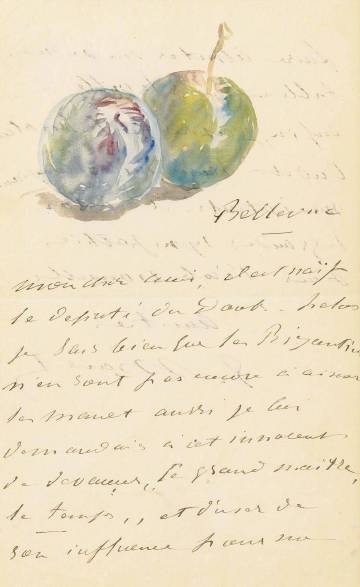 Bellevue
mon cher ami, il est naïf
le député du Doubs. helas
je sais bien que les Bizantins
n'en sont pas encore à aimer
les manet aussi je lui
demandais à cet innocent
de devancer, le grand maître,
le temps,, et d'user de
son influence pour me